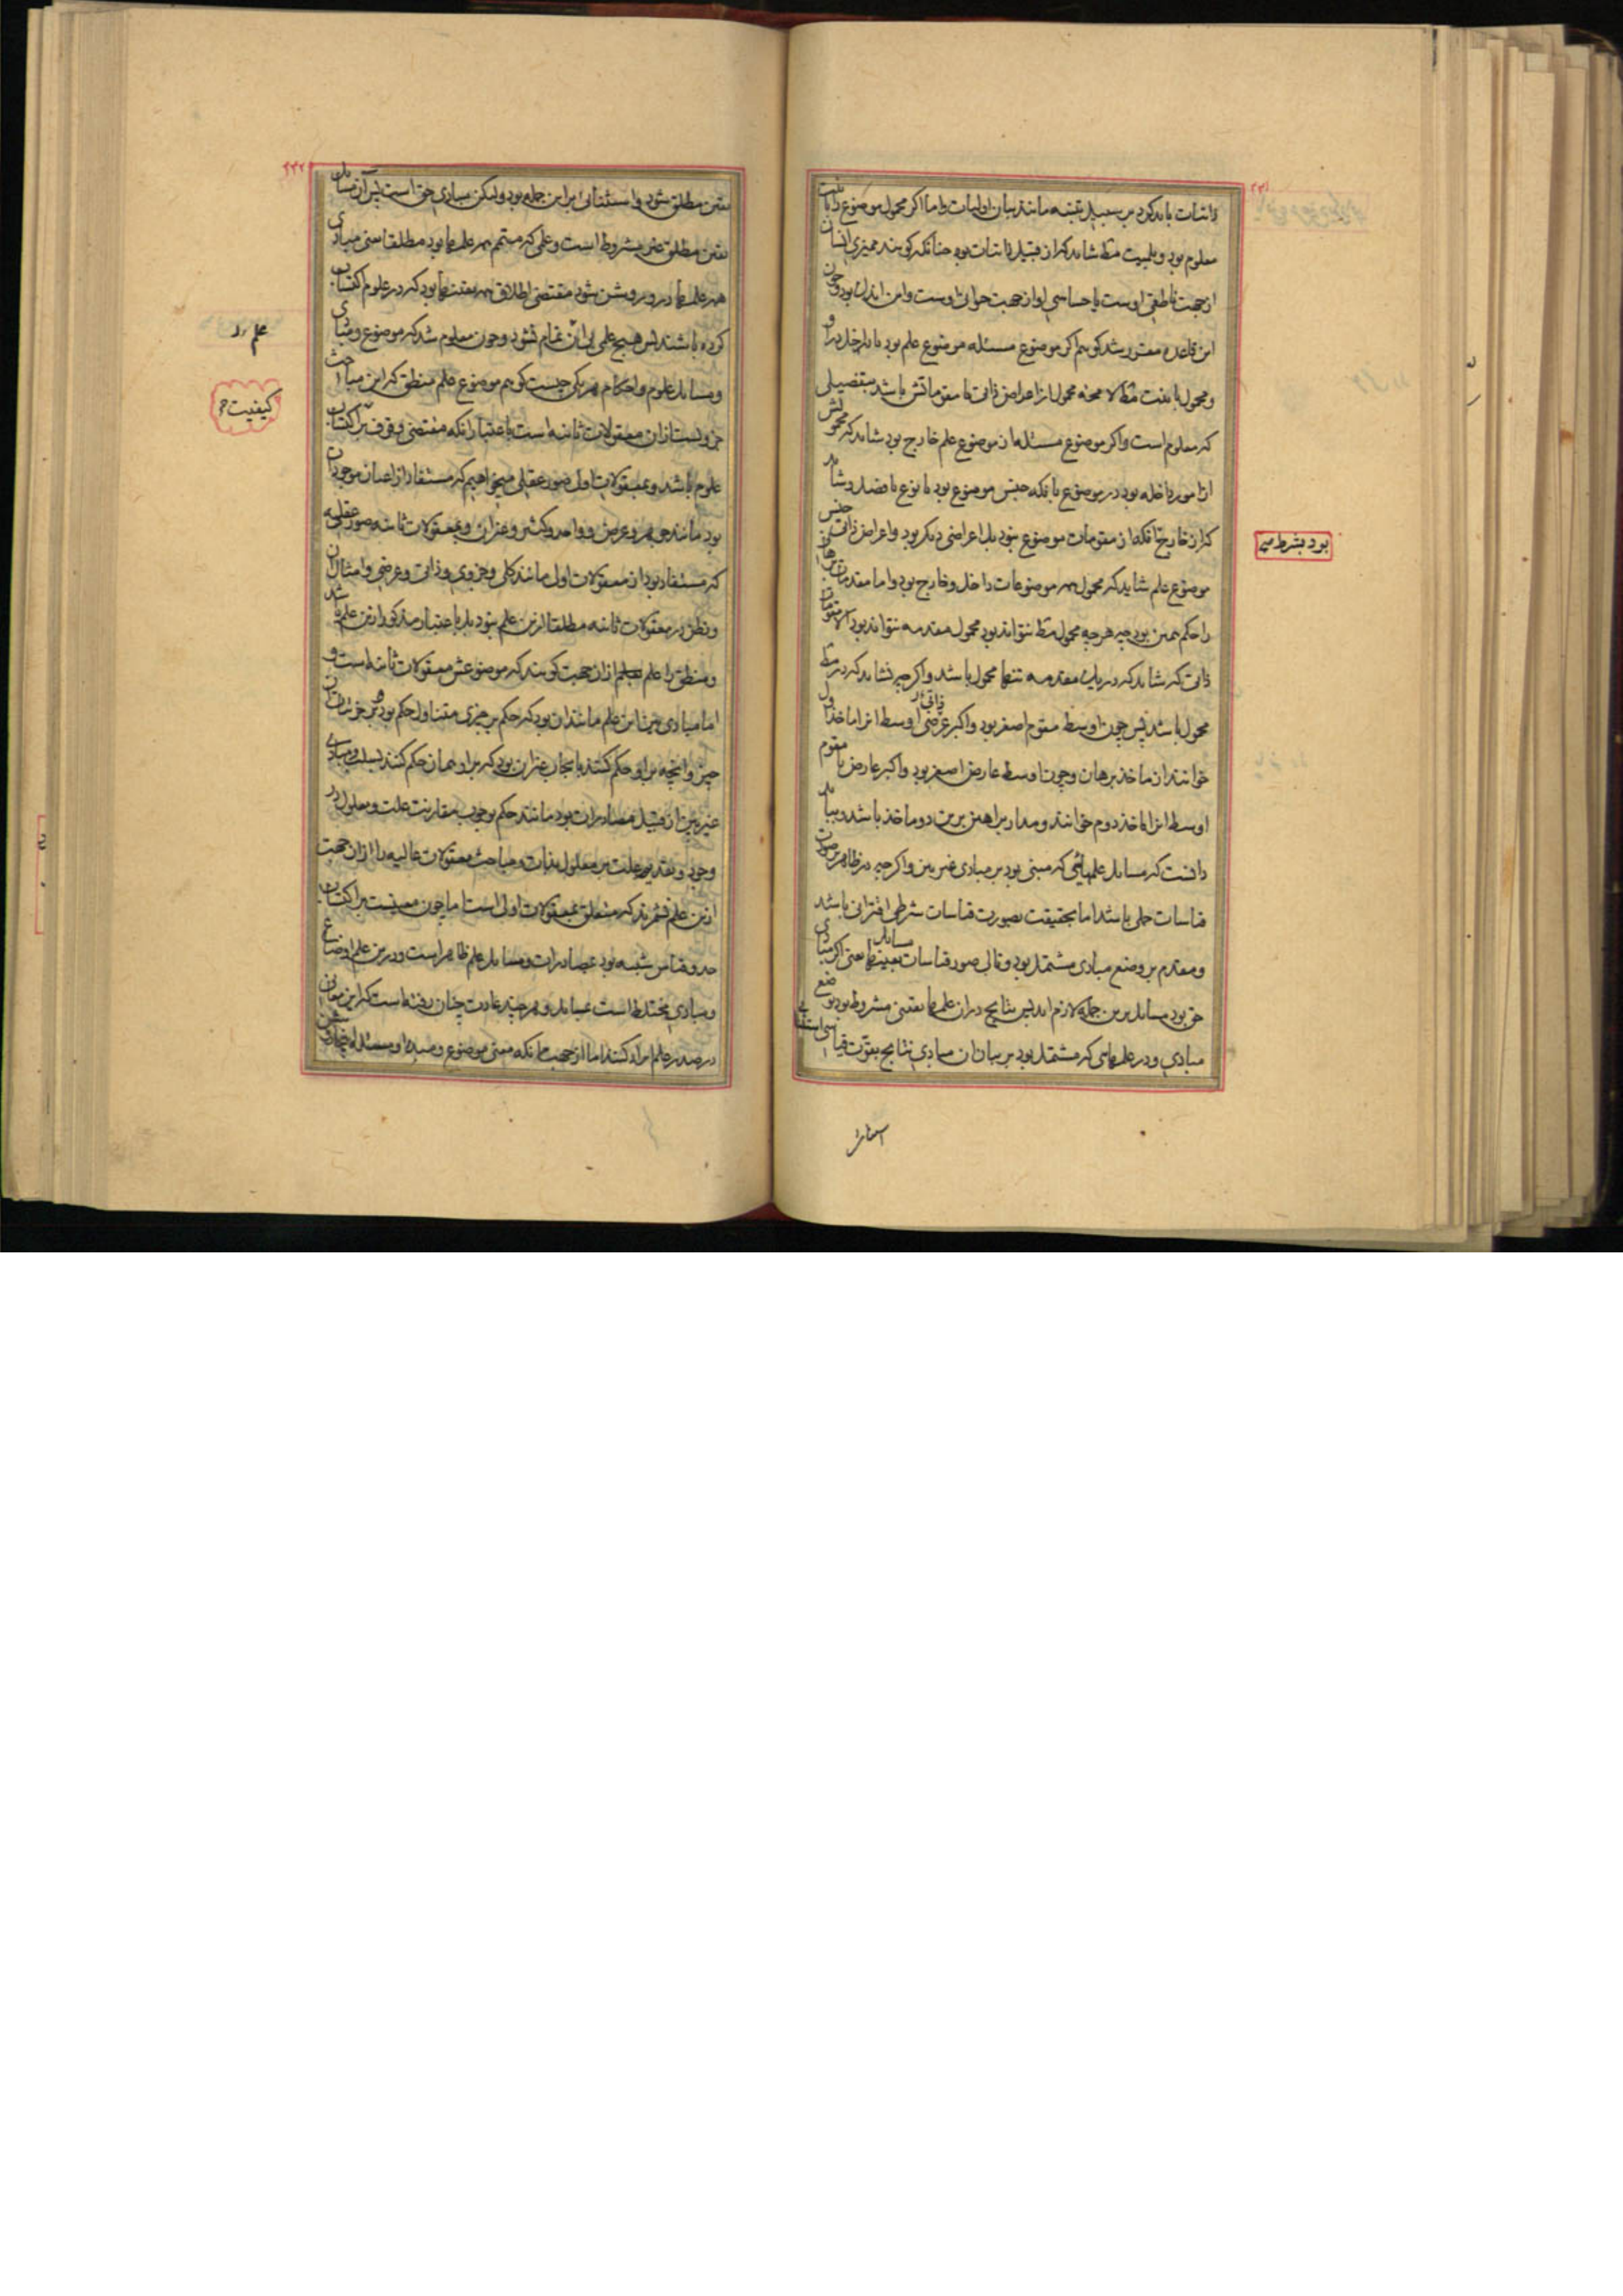 ۲۳۱
ذاتیات باید کرد بر سبیل تنبیه مانند بیان اولیات و اما اگر محمول موضوع را بانیت
معلوم بود و بلمیت مط شاید که از قبیل ذاتیات بود چنانکه گویند ممیزی انسان
از جهت ناطقی اوست یا حساسی او از جهت حیوانی اوست و این اندک بود و چون
این قاعده مقرر شد گوییم اگر موضوع مسئله موضوع علم بود یا داخل در او
و محمول بانیت مط لا محاله محمول از اعراض ذاتی یا مقوماتش باشد بتفصیلی
که معلوم است و اگر موضوع مسئله از موضوع علم خارج بود شاید که محمولش
از امور داخله بود در موضوع بانکه جنس موضوع بود یا نوع یا فصل و شاید
که از خارج بانکه از مقومات موضوع نبود بل اعراضی دیگر بود و اعراض ذاتی جنس
بود بشرط
موضوع علم شاید که محمول همه موضوعات داخل و خارج بود و اما مقدمات برهان
را حکم همین بود چه هر چه محمول مط نتواند بود محمول مقدمه نتواند بود الا مقومات
ذاتی که شاید که در یک مقدمه تنها محمول باشد و اگر چه نشاید که در مط
محمول باشد پس چون اوسط مقوم اصغر بود و اکبر عرضی ذاتی اوسط انرا ماخذ اول
خوانند از ماخذ برهان و چون اوسط عارض اصغر بود و اکبر عارض یا مقوم
اوسط انرا ماخذ دوم خوانند و مدار براهین برین دو ماخذ باشد و بباید
دانست که مسایل علمهائی که مبنی بود بر مبادی غیر بین و اگر چه در ظاهر بر صورت
قیاسات حملی باشد اما بحقیقت بصورت قیاسات شرطی اقترانی باشد
و مقدم بر وضع مبادی مشتمل بود و تالی صور قیاسات مسایل بعینها یعنی اگر مبادی
حق بود مسایل برین جمله لازم اید پس نتایج در ان علمها یقینی مشروط بود بوضع
مبادی و در علمهایی که مشتمل بود بر بیان ان مبادی نتایج بقوت قیاسی استثنایی
۲۳۲
یقین مطلق شود و استثنائی براین جمله بود ولیکن مبادی حق است پس آن مسایل
یقین مطلق غیر مشروط است و علمی که متمم همه علمها بود مطلقا یعنی مبادی
همه علمها در و روشن شود مقتضی اطلاق همه یقینها بود که در علوم اکتساب
کرده باشند پس هیچ علمی بی ان تمام نشود و چون معلوم شد که موضوع و مبادی
و مسایل علوم و احکام هر یکی چیست گوییم موضوع علم منطق که این مباحث
جزویست از ان معقولات ثانیه است باعتبار انکه مقتضی وقوف بر اکتساب
کیفیت
علوم باشد و بمعقولات اول صور عقلی میخواهیم که مستفاد از اعیان موجودات
بود مانند جوهر و عرض و واحد و کثیر و غیر ان و بمعقولات ثانیه صور عقلیه
که مستفاد بود از معقولات اول مانند کلی و جزوی و ذاتی و عرضی و امثال ان
و نظر در معقولات ثانیه مطلقا ازین علم نبود بل باعتبار مذکور ازین علم باشد
و منطق را علم علم ازان جهت گویند که موضوعش معقولات ثانیه است و
اما مبادی بین این علم مانند ان بود که حکم بر چیزی متناول حکم بود بر جزئیات ان
چیز و انچه براو حکم کنند بایجاب غیر ان بود که بر او همان حکم کنند بسلب و مبادی
غیر بین از قبیل مصادرات بود مانند حکم بوجوب مقارنت علت و معلول در
وجود و تقدم علت بر معلول بذات و مباحث معقولات عالیه را ازان جهت
ازین علم نشمرند که متعلق بمعقولات اولی است اما چون معینست بر اکتساب
حد و قیاس شبیه بود بمصادرات و مسایل علم ظاهر است و درین علم اوضاع
و مبادی مختلط است بمسایل و هر چند عادت چنان رفته است که این معانی
در صدر علم ایراد کنند اما از جهت انکه معنی موضوع و مبداء و مسئله